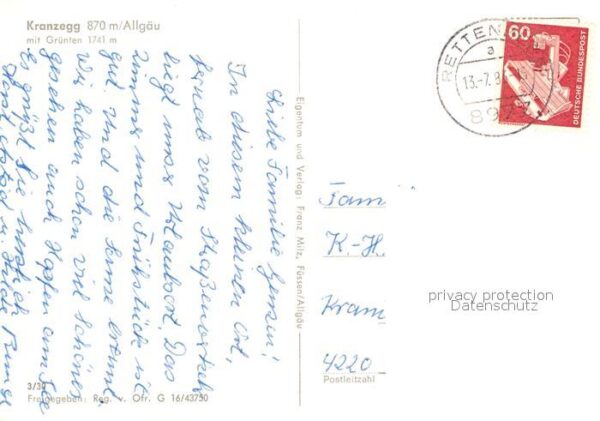 Kranzegg 870 m/Allgäu
mit Grünten 1741 m
Liebe Familie Jensen!
In diesem kleinen Ort,
fernab vom Straßenverkehr
liegt unser Urlaubsort. Das
Zimmer und Frühstück ist
gut und die Sonne brennt
Wir haben schon viel Schönes
gesehen auch Hopfen am See
Es grüßt Sie herzlich
u. Hilde
3/39
Freigegeben: Reg. v. Ofr. G 16/43750
Eigentum und Verlag: Franz Milz, Füssen/Allgäu
RETTEN
a
13.-7.8
897
60
DEUTSCHE BUNDESPOST
Fam
K.-H.
Kram
4220
Postleitzahl
privacy protection
Datenschutz